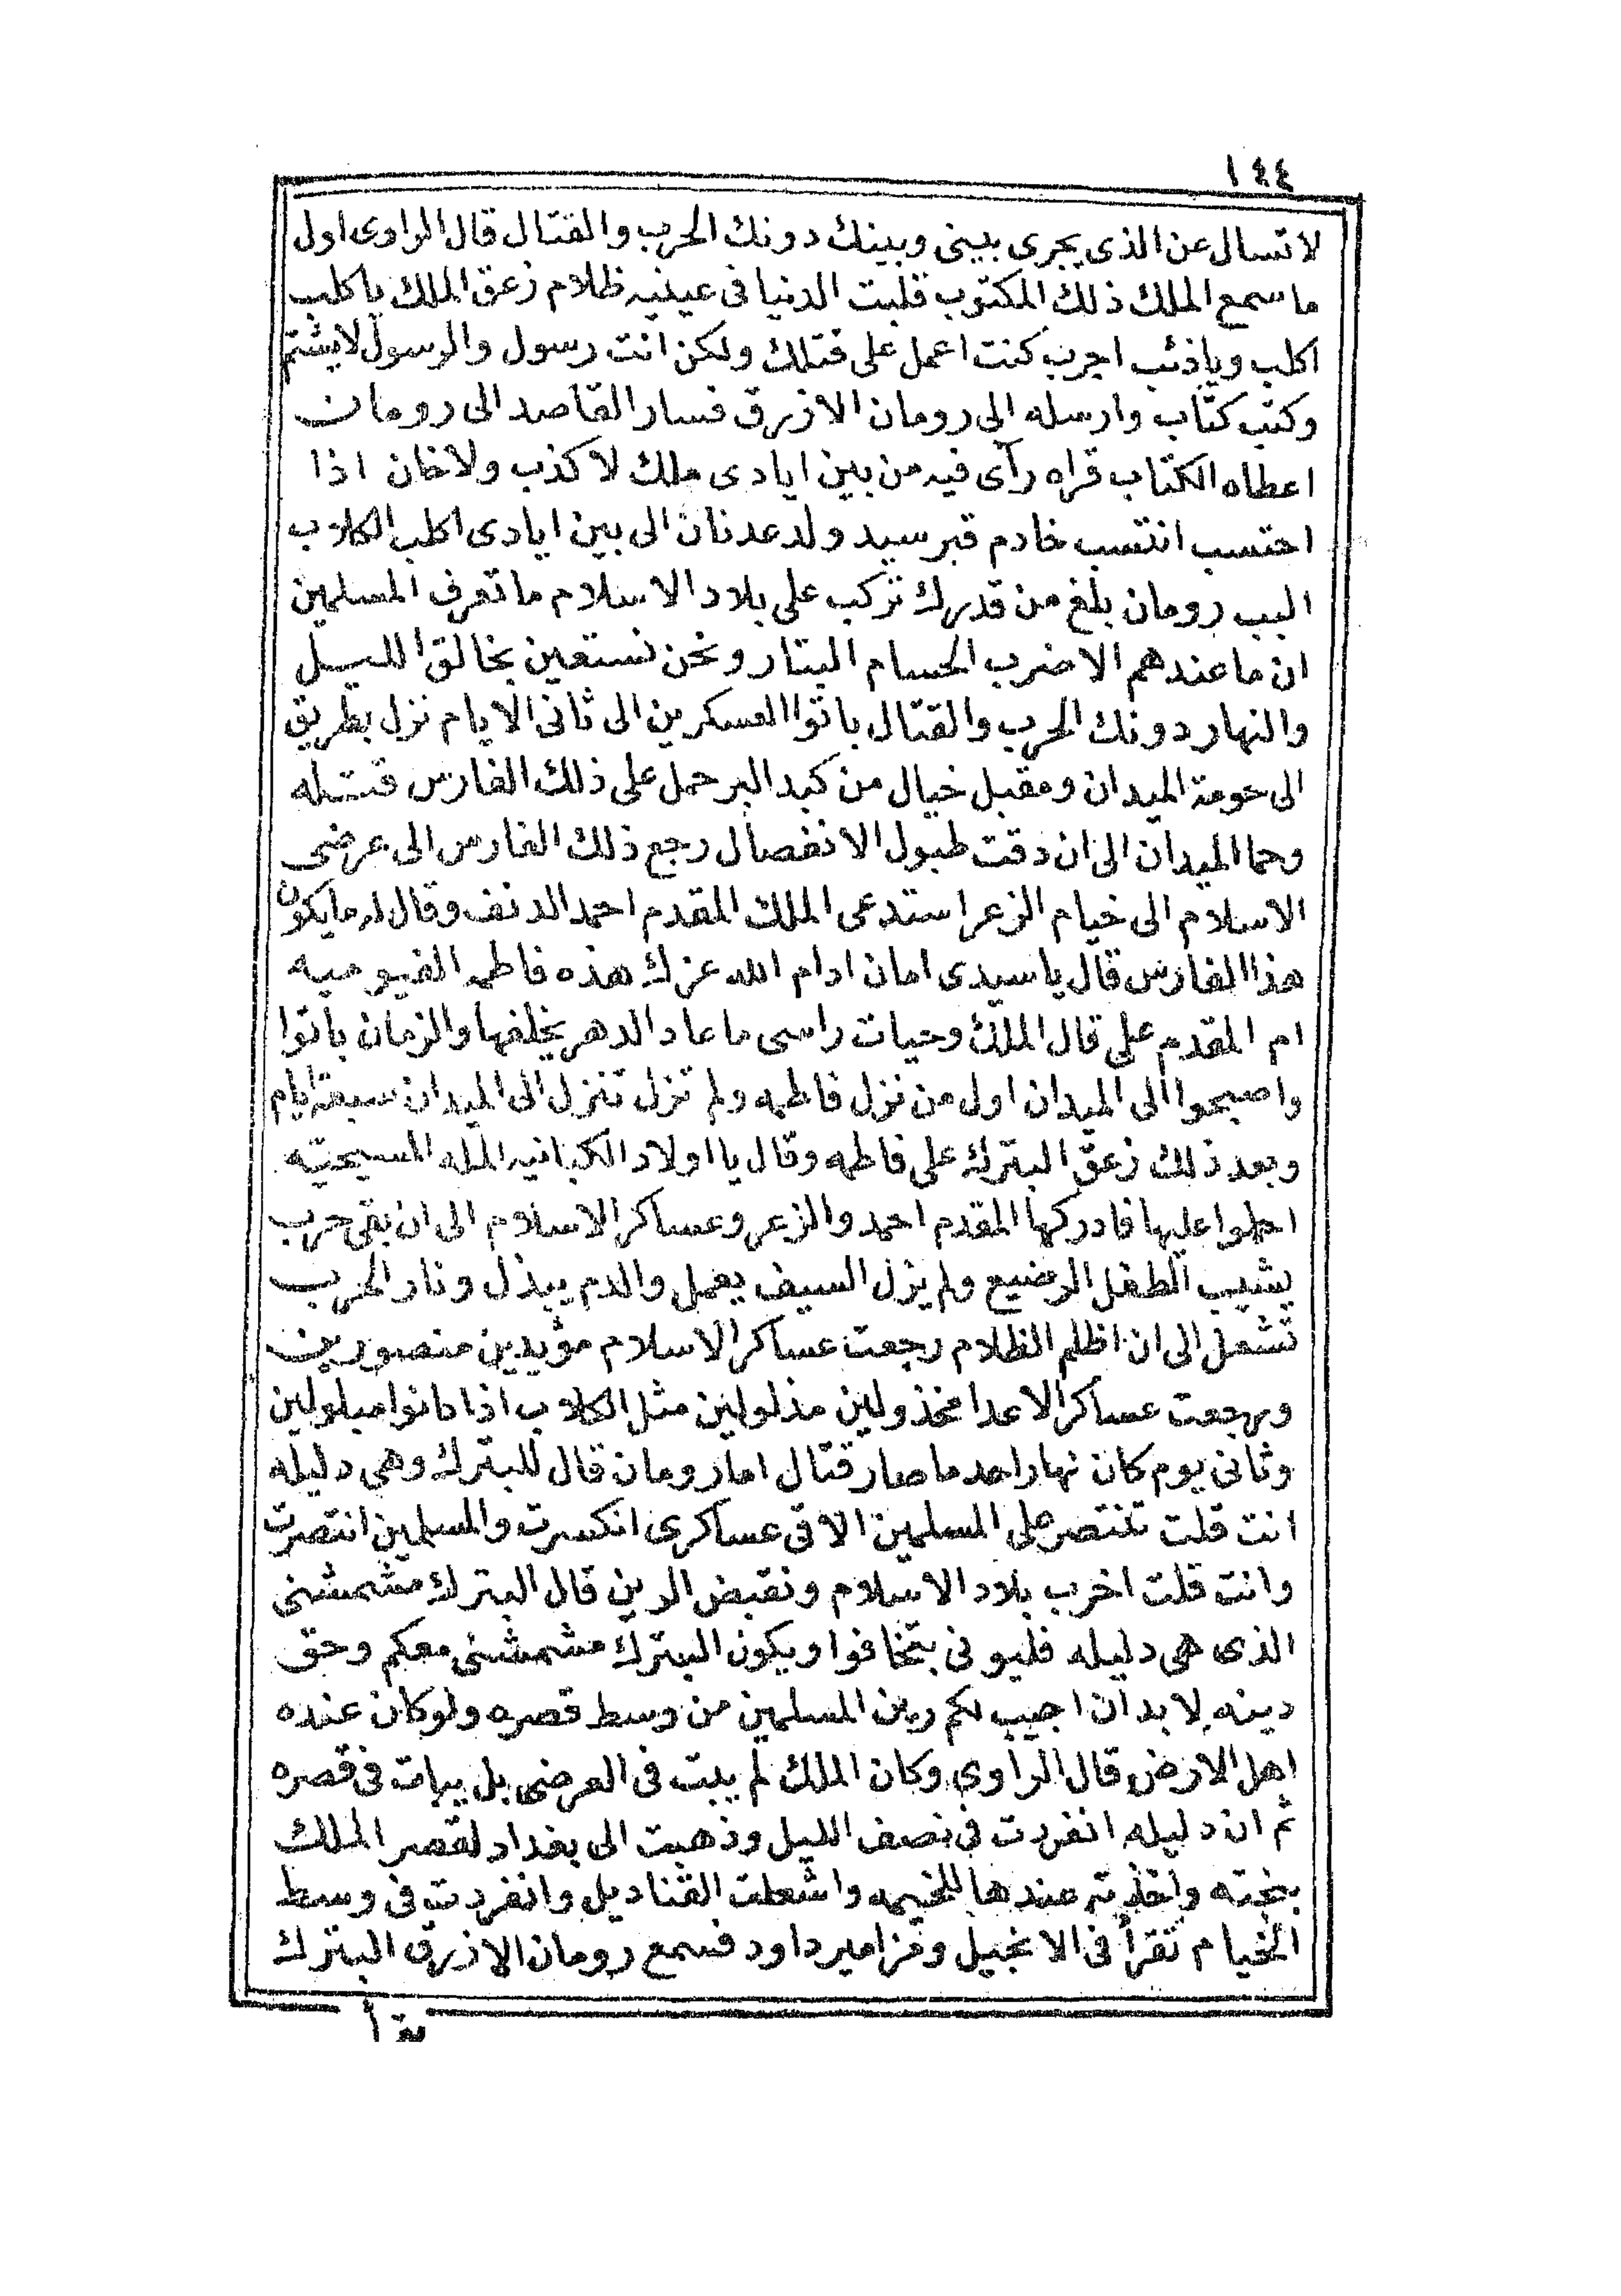 ١٤٤
لا تسال عن الذى يجرى بينى وبينك دونك الحرب والقتال قال الراوى اول
ما سمع الملك ذلك المكتوب قلبت الدنيا فى عينيه ظلام زعق الملك يا كلب
اكلب وياذئب اجرب كنت اعمل على قتلك ولكن انت رسول والرسول لا يشتم
وكتب كتاب وارسله الى رومان الازرق فسار القاصد الى رومان
اعطاه الكتاب قراه رآى فيه من بين ايادى ملك لا كذب ولا خان اذا
احتسب انتسب خادم قبر سيد ولد عدنان الى بين ايادى اكلب الكلاب
البب رومان بلغ من قدرك تركب على بلاد الاسلام ما تعرف المسلمين
ان ما عندهم الا ضرب الحسام البتار ونحن نستعين بخالق الليل
والنهار دونك الحرب والقتال باتوا العسكرين الى ثانى الايام نزل بطريق
الى حومة الميدان ومقبل خيال من كبد البر حمل على ذلك الفارس قتله
وحما الميدان الى ان دقت طبول الانفصال رجع ذلك الفارس الى عرضى
الاسلام الى خيام الزعر استدعى الملك المقدم احمد الدنف وقال له ما يكون
هذا الفارس قال يا سيدى امان ادام الله عزك هذه فاطمه الفيوميه
ام المقدم على قال الملك وحيات راسى ما عاد الدهر يخلفها والزمان باتوا
واصبحوا الى الميدان اول من نزل فاطمه ولم تزل تنزل الى الميدان سبعة ايام
وبعد ذلك زعق البترك على فاطمه وقال يا اولاد الكبانيه المله المسيحيه
احملوا عليها فادركها المقدم احمد والزعر وعساكر الاسلام الى ان بقى حرب
يشيب الطفل الرضيع ولم يزل السيف يعمل والدم يبذل ونار الحرب
تشعل الى ان اظلم الظلام رجعت عساكر الاسلام مؤيدين منصورين
ورجعت عساكر الاعدا مخذولين مذلولين مثل الكلاب اذا كانوا مبلولين
وثانى يوم كان نهار احد ما صار قتال اما رومان قال للبترك وهى دليله
انت قلت تنتصر على المسلمين الاقى عساكرى انكسرت والمسلمين انتصرت
وانت قلت اخرب بلاد الاسلام ونقبض الرين قال البترك مشمشنى
الذى هى دليله فليونى بتخافوا ويكون البترك مشمشنى معكم وحق
دينه لا بد ان اجيب لكم رين المسلمين من وسط قصره ولو كان عنده
اهل الارض قال الراوى وكان الملك لم يبت فى العرضى بل يبات فى قصره
ثم ان دليله انفردت فى نصف الليل وذهبت الى بغداد لقصر الملك
بنجته واخذته عندها للخيمه واشعلت القناديل وانفردت فى وسط
الخيام تقرأ فى الانجيل ومزامير داود فسمع رومان الازرق البترك
يقرا